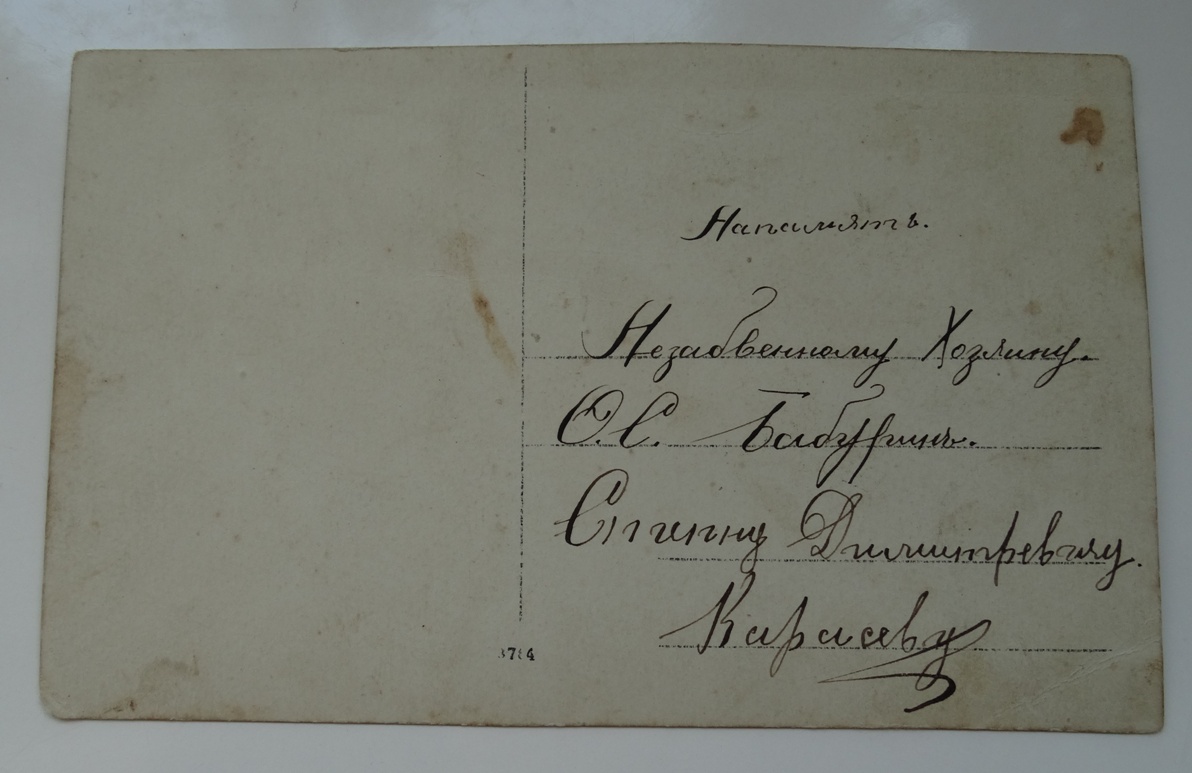 Напамять.
Незабвенному Хозяину.
О.С. Бабуринъ.
Димитревичу.
Карасеву
3784